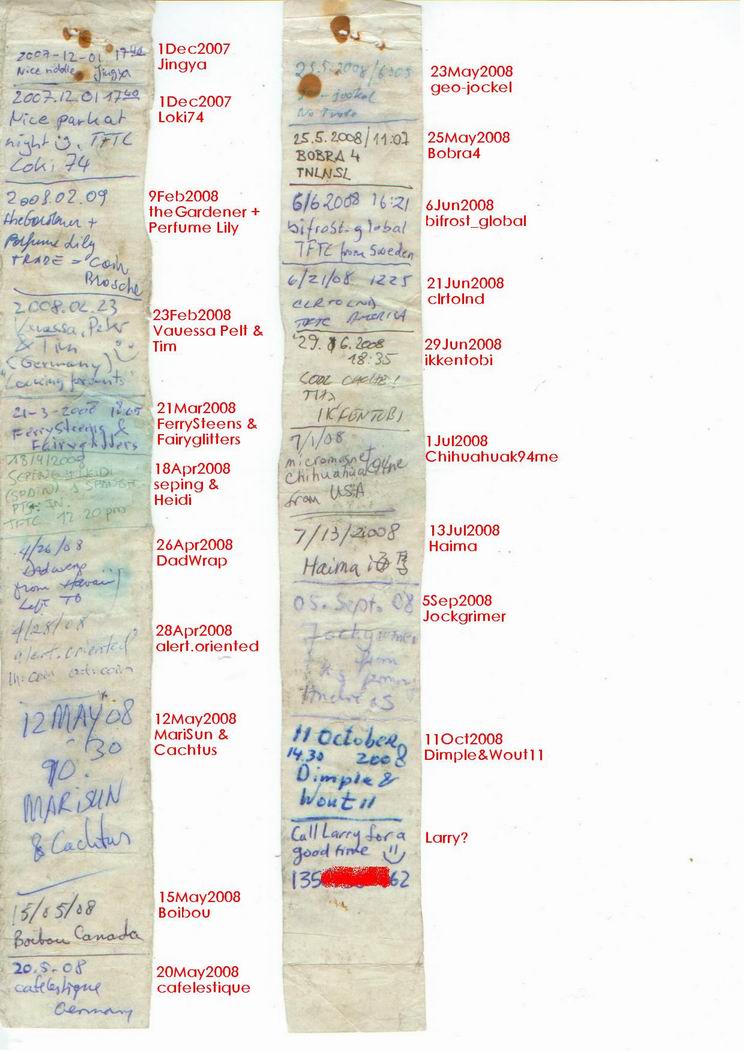 2007-12-01 17
Nice riddle Jingya
1Dec2007
Jingya
2007.12.01 17
Nice park at
night :), TFTC
Loki 74
1Dec2007
Loki74
2008.02.09
theGardener +
Perfume Lily
TRADE = Coin
Brosche
9Feb2008
theGardener +
Perfume Lily
2008.02.23
Vanessa, Peter
& Tim
(Germany)
23Feb2008
Vauessa Pelt &
Tim
21-3-2008
FerrySteens &
Fairyglitters
21Mar2008
FerrySteens &
Fairyglitters
18/4/2008
SEPING & HEIDI
(SPAIN)
TFTC 12.20 pm
18Apr2008
seping &
Heidi
4/26/08
Dadwrap
from Hawaii
Left TB
26Apr2008
DadWrap
4/28/08
alert.oriented
in: coin out: coin
28Apr2008
alert.oriented
12 MAY 08
90.30
MARiSUN
& Cachtus
12May2008
MariSun &
Cachtus
15/05/08
Boibou Canada
15May2008
Boibou
20.5.08
cafelestique
Germany
20May2008
cafelestique
5.2008
geo-jockel
No Trade
23May2008
geo-jockel
25.5.2008/11:07
BOBRA 4
TNLNSL
25May2008
Bobra4
6/6 2008 16:21
bifrost-global
TFTC from Sweden
6Jun2008
bifrost_global
6/21/08 1225
CLRTOLND
TFTC AMERICA
21Jun2008
clrtolnd
29. 6.2008
18:35
COOL CACHE!
IKKENTOBI
29Jun2008
ikkentobi
7/1/08
micromagnet
chihuahuak94me
from USA
1Jul2008
Chihuahuak94me
7/13/2008
Haima
13Jul2008
Haima
05. Sept. 08
Jockgrimer
from
5Sep2008
Jockgrimer
11 October
14.30 2008
Dimple &
Wout 11
11Oct2008
Dimple&Wout11
Call Larry for a
good time
135 62
Larry?